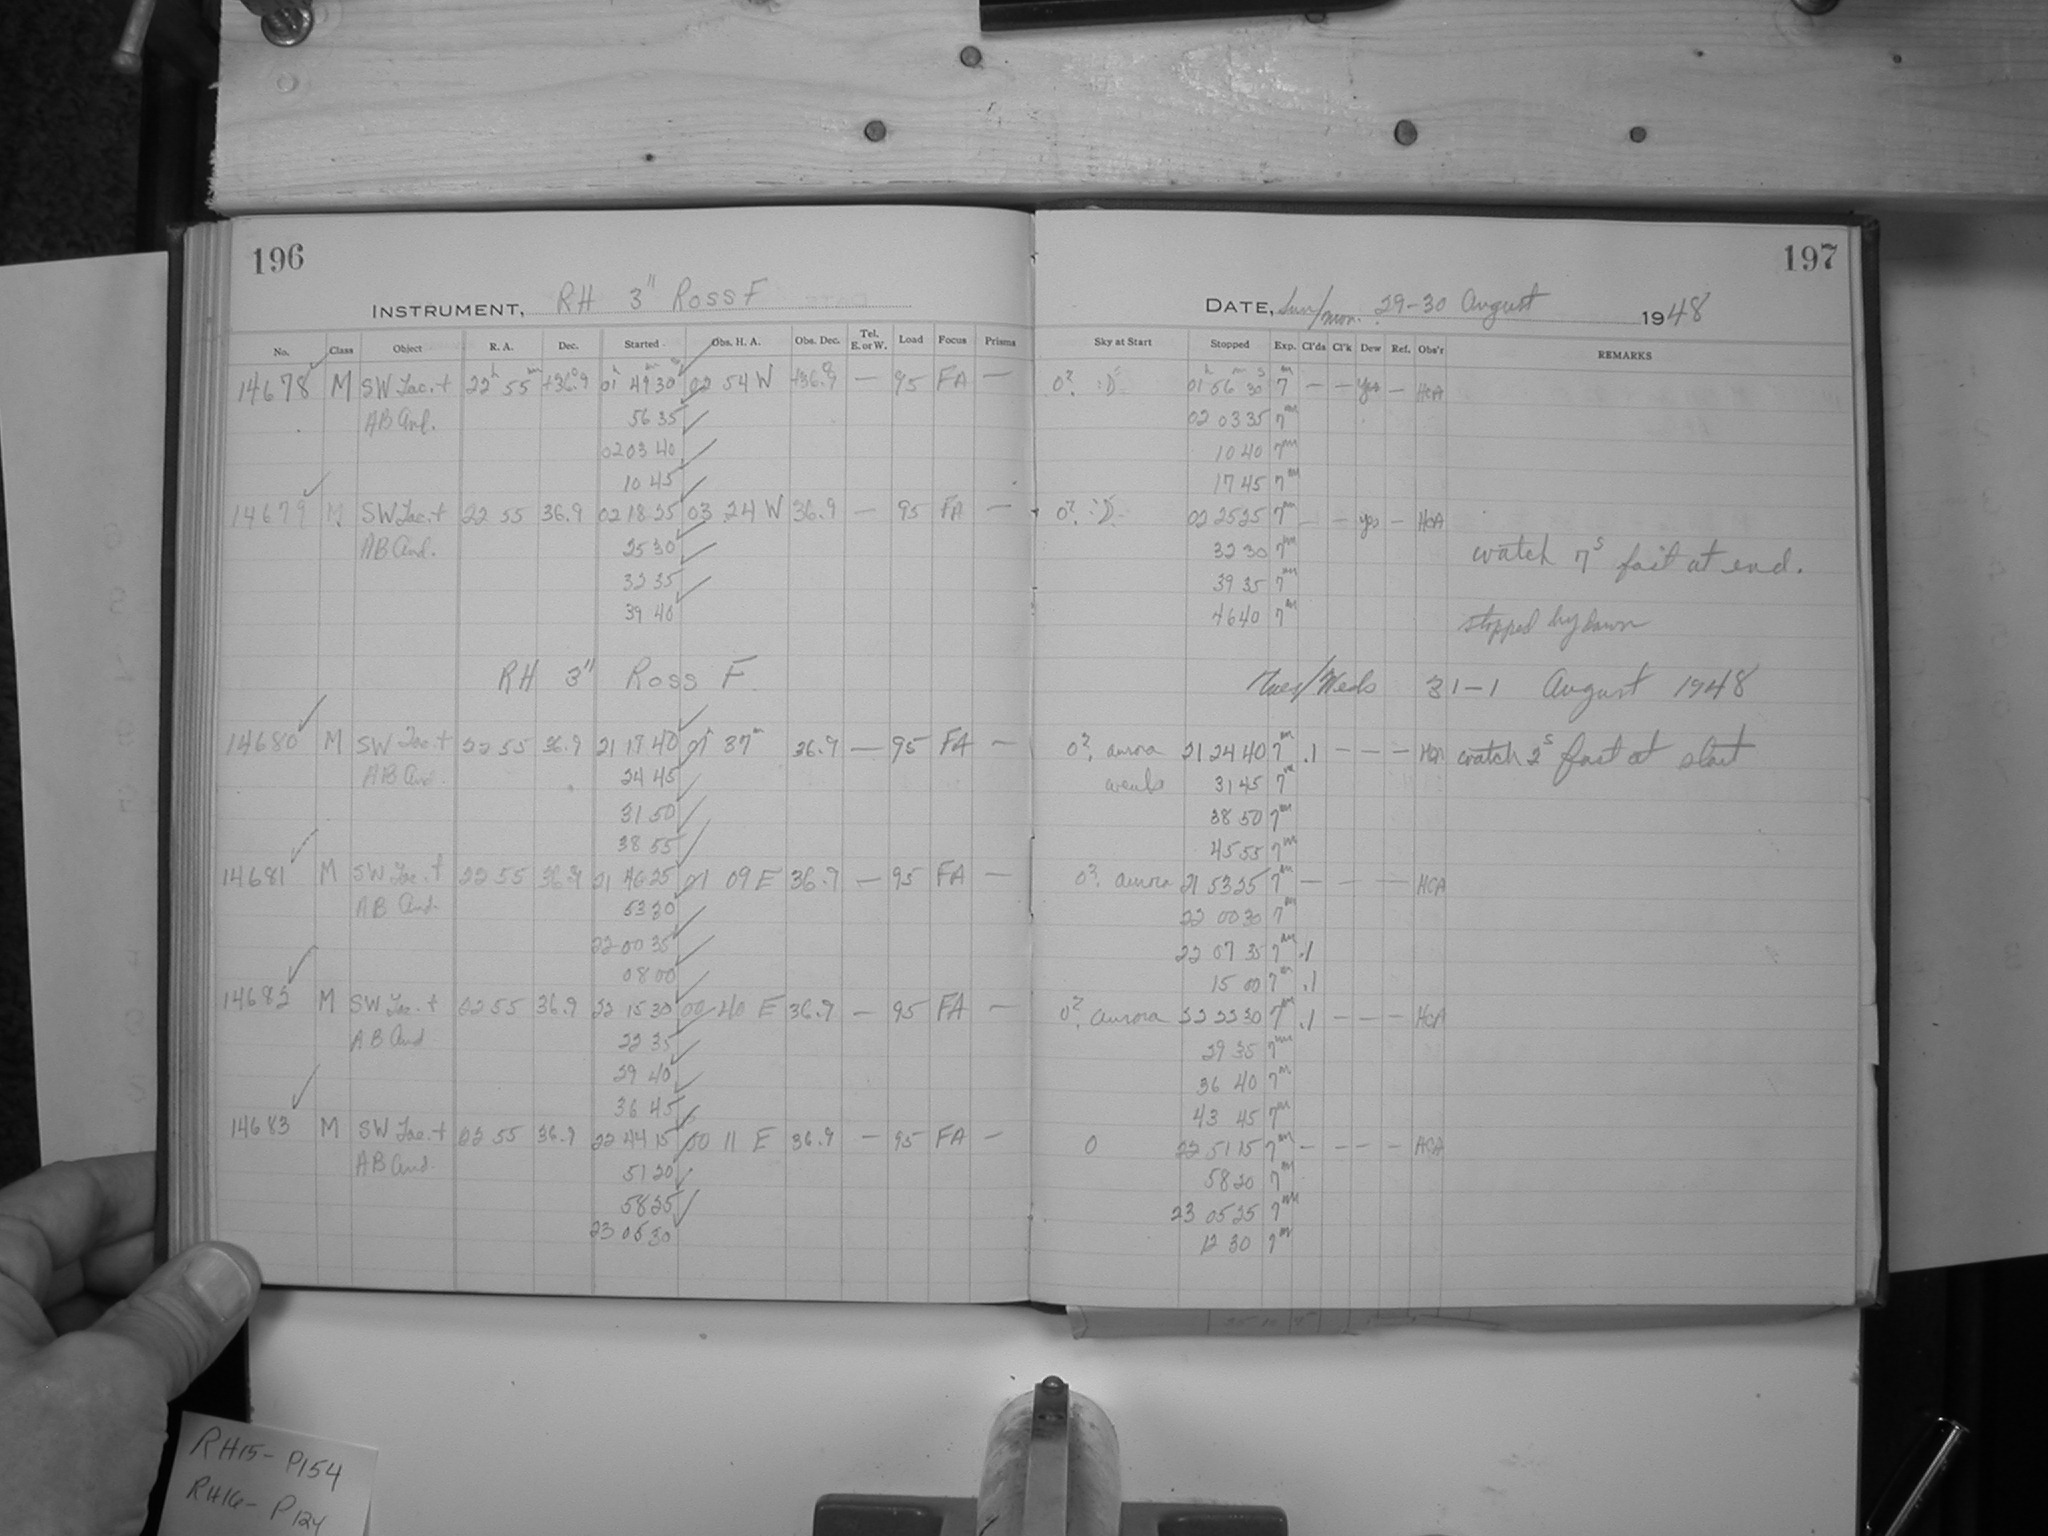 196
197
INSTRUMENT, RH 3" ROSS F
DATE, Sun/Mon. 29-30 August 1948
No. Class Object R. A. Dec. Started Obs. H. A. Obs. Dec. Tel. E. or W. Load Focus Prisms Sky at Start Stopped Exp. Cl'ds Cl'k Dew Ref. Obs'r REMARKS
14678 M SW Lac. + 22h 55m +36.9 01h 49m 30s 02 54 W +36.9 — 95 FA — 0? 01h 56m 30s 7m — — yes — HCA
AB And. 56 35 02 03 35 7m
02 03 40 10 40 7m
10 45 17 45 7m
14679 M SW Lac. + 22 55 36.9 02 18 25 03 24 W 36.9 — 95 FA — 0? 02 25 25 7m — — yes — HCA
AB And. 25 30 32 30 7m watch 7s fast at end.
32 35 39 35 7m
39 40 46 40 7m stopped by dawn
RH 3" Ross F Tues/Weds 31-1 August 1948
14680 M SW Lac. + 22 55 36.9 21 17 40 01h 37m 36.9 — 95 FA — 0? aurora 21 24 40 7m .1 — — — HCA watch 2s fast at start
AB And. 24 45 weak 31 45 7m
31 50 38 50 7m
38 55 45 55 7m
14681 M SW Lac. + 22 55 36.9 21 46 25 01 09 E 36.9 — 95 FA — 0? aurora 21 53 25 7m — — — HCA
AB And. 53 30 22 00 30 7m
22 00 35 22 07 35 7m .1
08 00 15 00 7m .1
14682 M SW Lac. + 22 55 36.9 22 15 30 00 40 E 36.9 — 95 FA — 0? aurora 22 22 30 7m .1 — — — HCA
AB And 22 35 29 35 7m
29 40 36 40 7m
36 45 43 45 7m
14683 M SW Lac. + 22 55 36.9 22 44 15 00 11 E 36.9 — 95 FA — 0 22 51 15 7m — — — — HCA
AB And. 51 20 58 20 7m
58 25 23 05 25 7m
23 05 30 12 30 7m
RH15- P154
RH16- P124